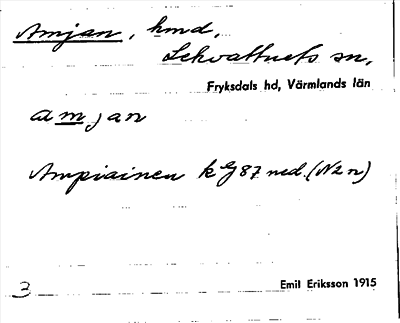 Amjan, hmd,
Lekvattnets sn,
Fryksdals hd, Värmlands län
a m j an
Ampiainen k 87 ned. (N2n)
3
Emil Eriksson 1915